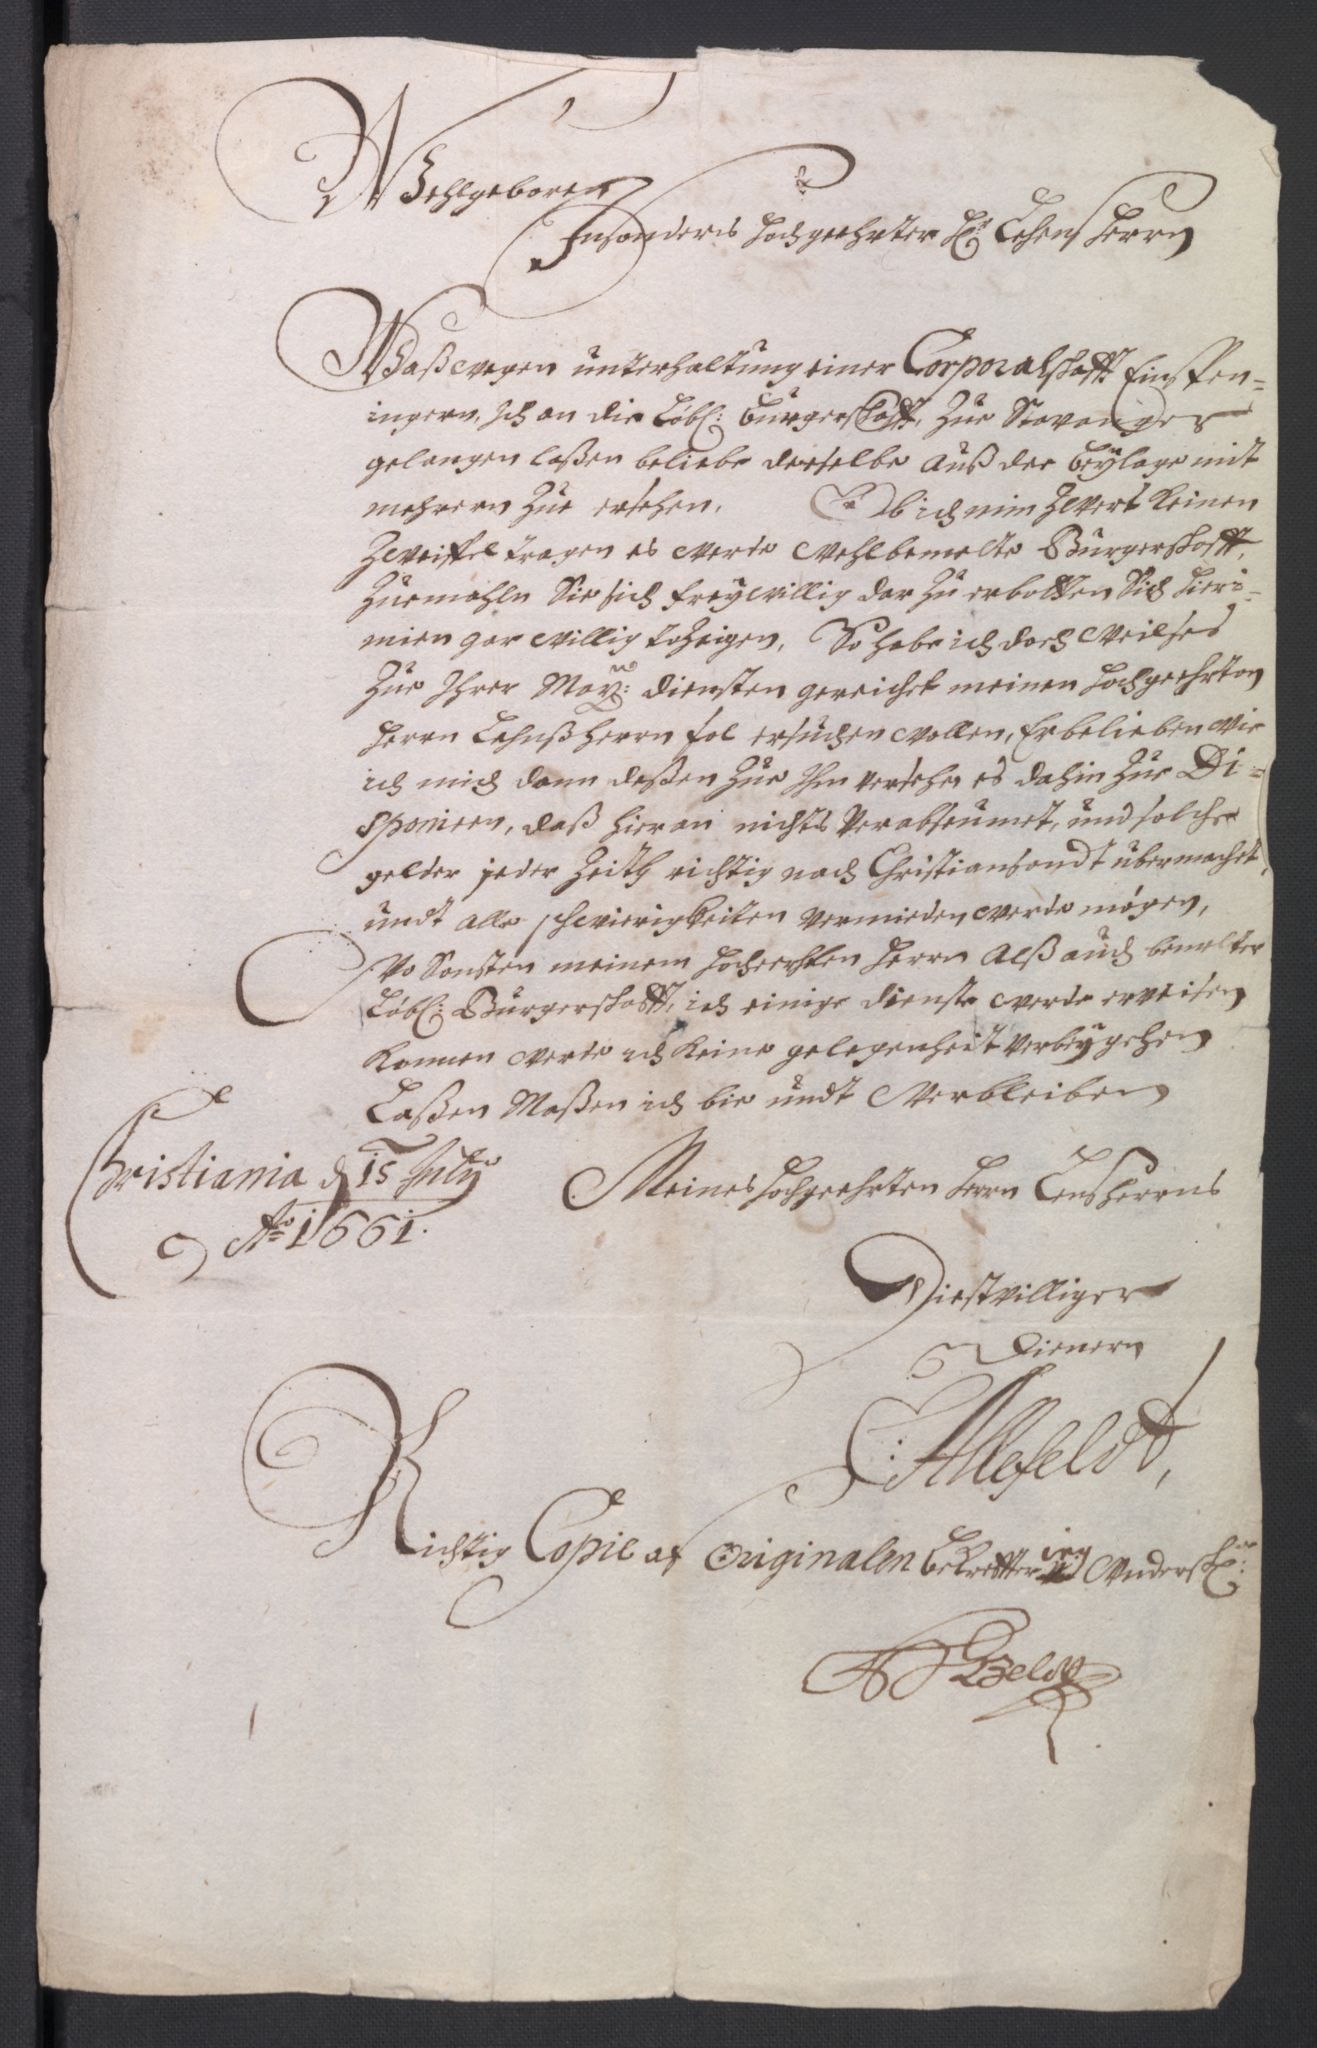 Wohlgeboren
Insonders hochgeehrter Hr: Lehens Herrn
Waß wegen unterhaltung einer Corporalschafft Einspen=
ingern, Ich an die Löbl: Burgerschafft, zue Stavanger
gelangen laßen beliebe derselbe auß der beylage mit
mehrern zue ersehen. Ob ich nun zwert keinen
zweiffel tragen es werde wohlbemelte Burgerschafft,
zuemahln Sie sich freywillig darzu erbotten Sich hier=
innen gar willig zozeigen, So habe ich doch weil ses
zue Ihrer May: diensten gereichet meinen hochgeehrten
Herrn Lehnßherrn hol ersuchen wollen, Er belieben wie
ich mich dann deßen zue Ihm versehe, es dahin zur Di=
sponieren, daß hieran nichts verabseumet, und solche
gelder jeder Zeith richtig nach Christiansandt übermachet,
undt alle schwierigkeiten vermieden werde mögen,
Wo Sonsten meinem hochgeehrten Herrn Alß auch bemelter
Löbl: Burgerschafft, ich einige dienste werde erweisen
konnen werde ich keine gelegenheit verbeygehen
Laßen Maßen ich bin undt Verbleiben
Christiania d 15 July
Ao 1661.
Meines hochgeehrten Herrn Lensherrns
Dienstwilliger
Dienern
Allefeldt,
Richtig Copie af Originalen bekreffter ieg Underskr: